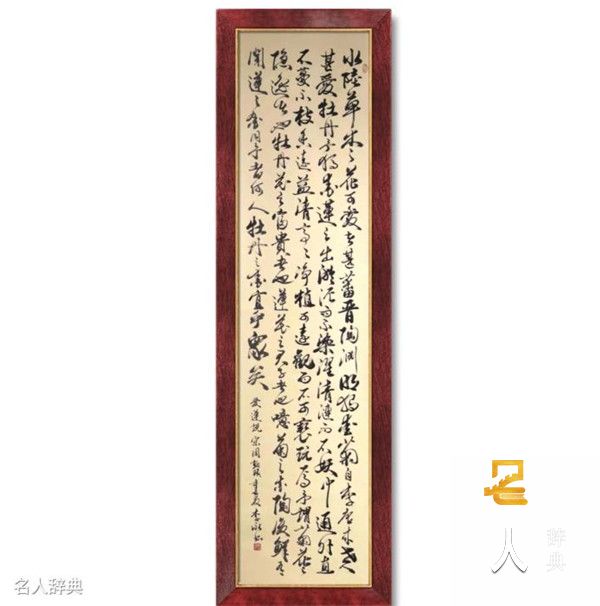 水陸草木之花可愛者甚蕃晋陶渊明独爱菊自李唐来世人
甚愛牡丹予独爱蓮之出淤泥而不染濯清漣而不妖中通外直
不蔓不枝香遠益清亭々净植可遠觀而不可褻玩焉予謂菊花之
隐逸者也牡丹花之富貴者也蓮花之君子者也噫菊之爱陶後鲜有
闻蓮之爱同予者何人牡丹之爱宜乎眾矣 爱蓮説 宋周敦颐
名人辞典
名人辞典